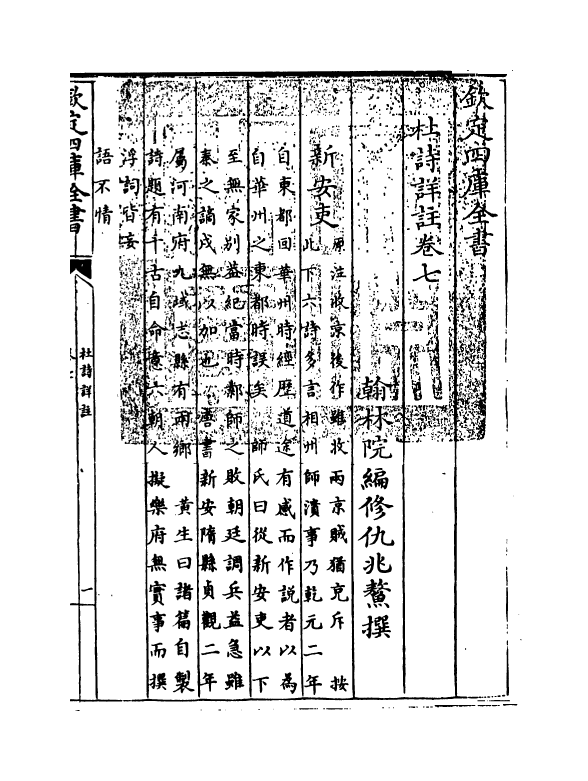 欽定四庫全書
杜詩詳註卷七
翰林院編修仇兆鰲撰
新安吏
原注收京後作雖收兩京賊猶充斥 按
此下六詩多言相州師潰事乃乾元二年
自東都回華州時經歷道途有感而作説者以為
自華州之東都時誤矣 師氏曰從新安吏以下
至無家别葢紀當時鄴師之敗朝廷調兵益急雖
秦之謫戍無以加也 唐書新安隋縣貞觀二年
屬河南府九域志縣有兩鄉 黄生曰諸篇自製
詩題有千古自命意六朝人擬樂府無實事而撰
浮詞皆妄
語不情
欽定四庫全書
杜詩詳註
一